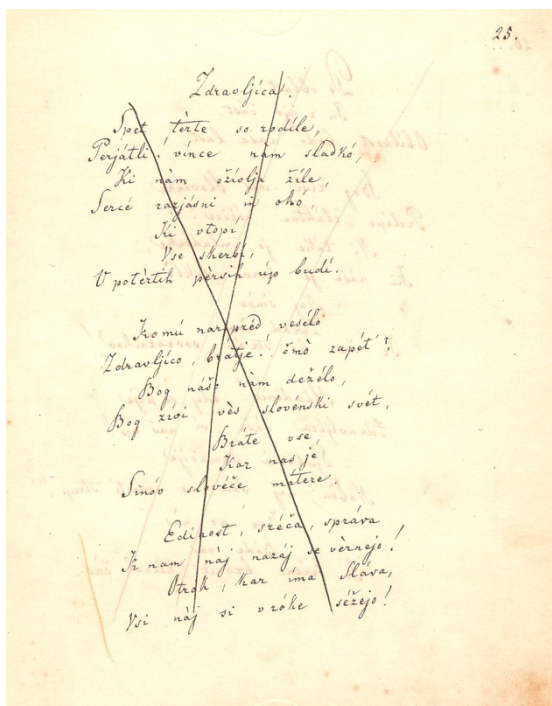 25.
Zdravljíca.
Spet tèrte so rodíle,
Perjátli! vínce nàm sladkó,
Ki nàm ožívlja žíle,
Sercé razjásni in okó,
Ki vtopí
Vse skerbí,
V potèrtih pèrsih úp budí.
Komú narpréd vesélo
Zdravljíco, bratje! čmò zapét'!
Bog nášo nàm dežélo,
Bog živi vès slovénski svét,
Bráte vse,
Kar nas je
Sinóv slovéče mátere.
Edínost, sréča, správa
K nam náj nazáj se vèrnejo!
Otrók, kar íma Sláva,
Vsi náj si v róke séžejo!